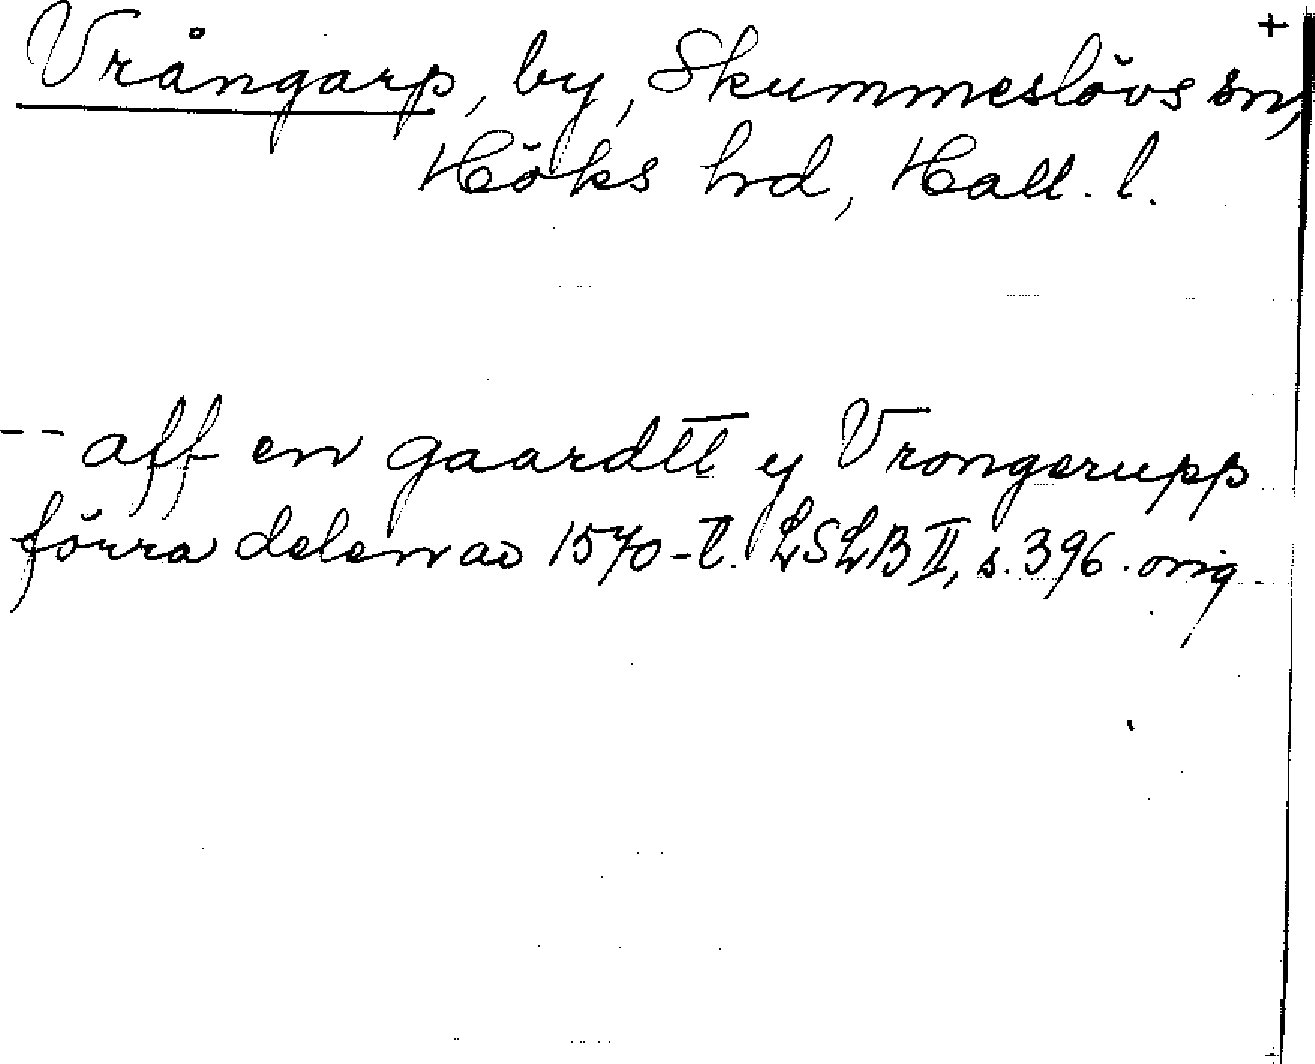 +
Vrångarp, by, Skummeslövs sn,
Höks hrd, Hall. l.
-- aff en gaardtt y Vrongerupp
förra delen av 1570-t. LSLB II, s. 396. orig.